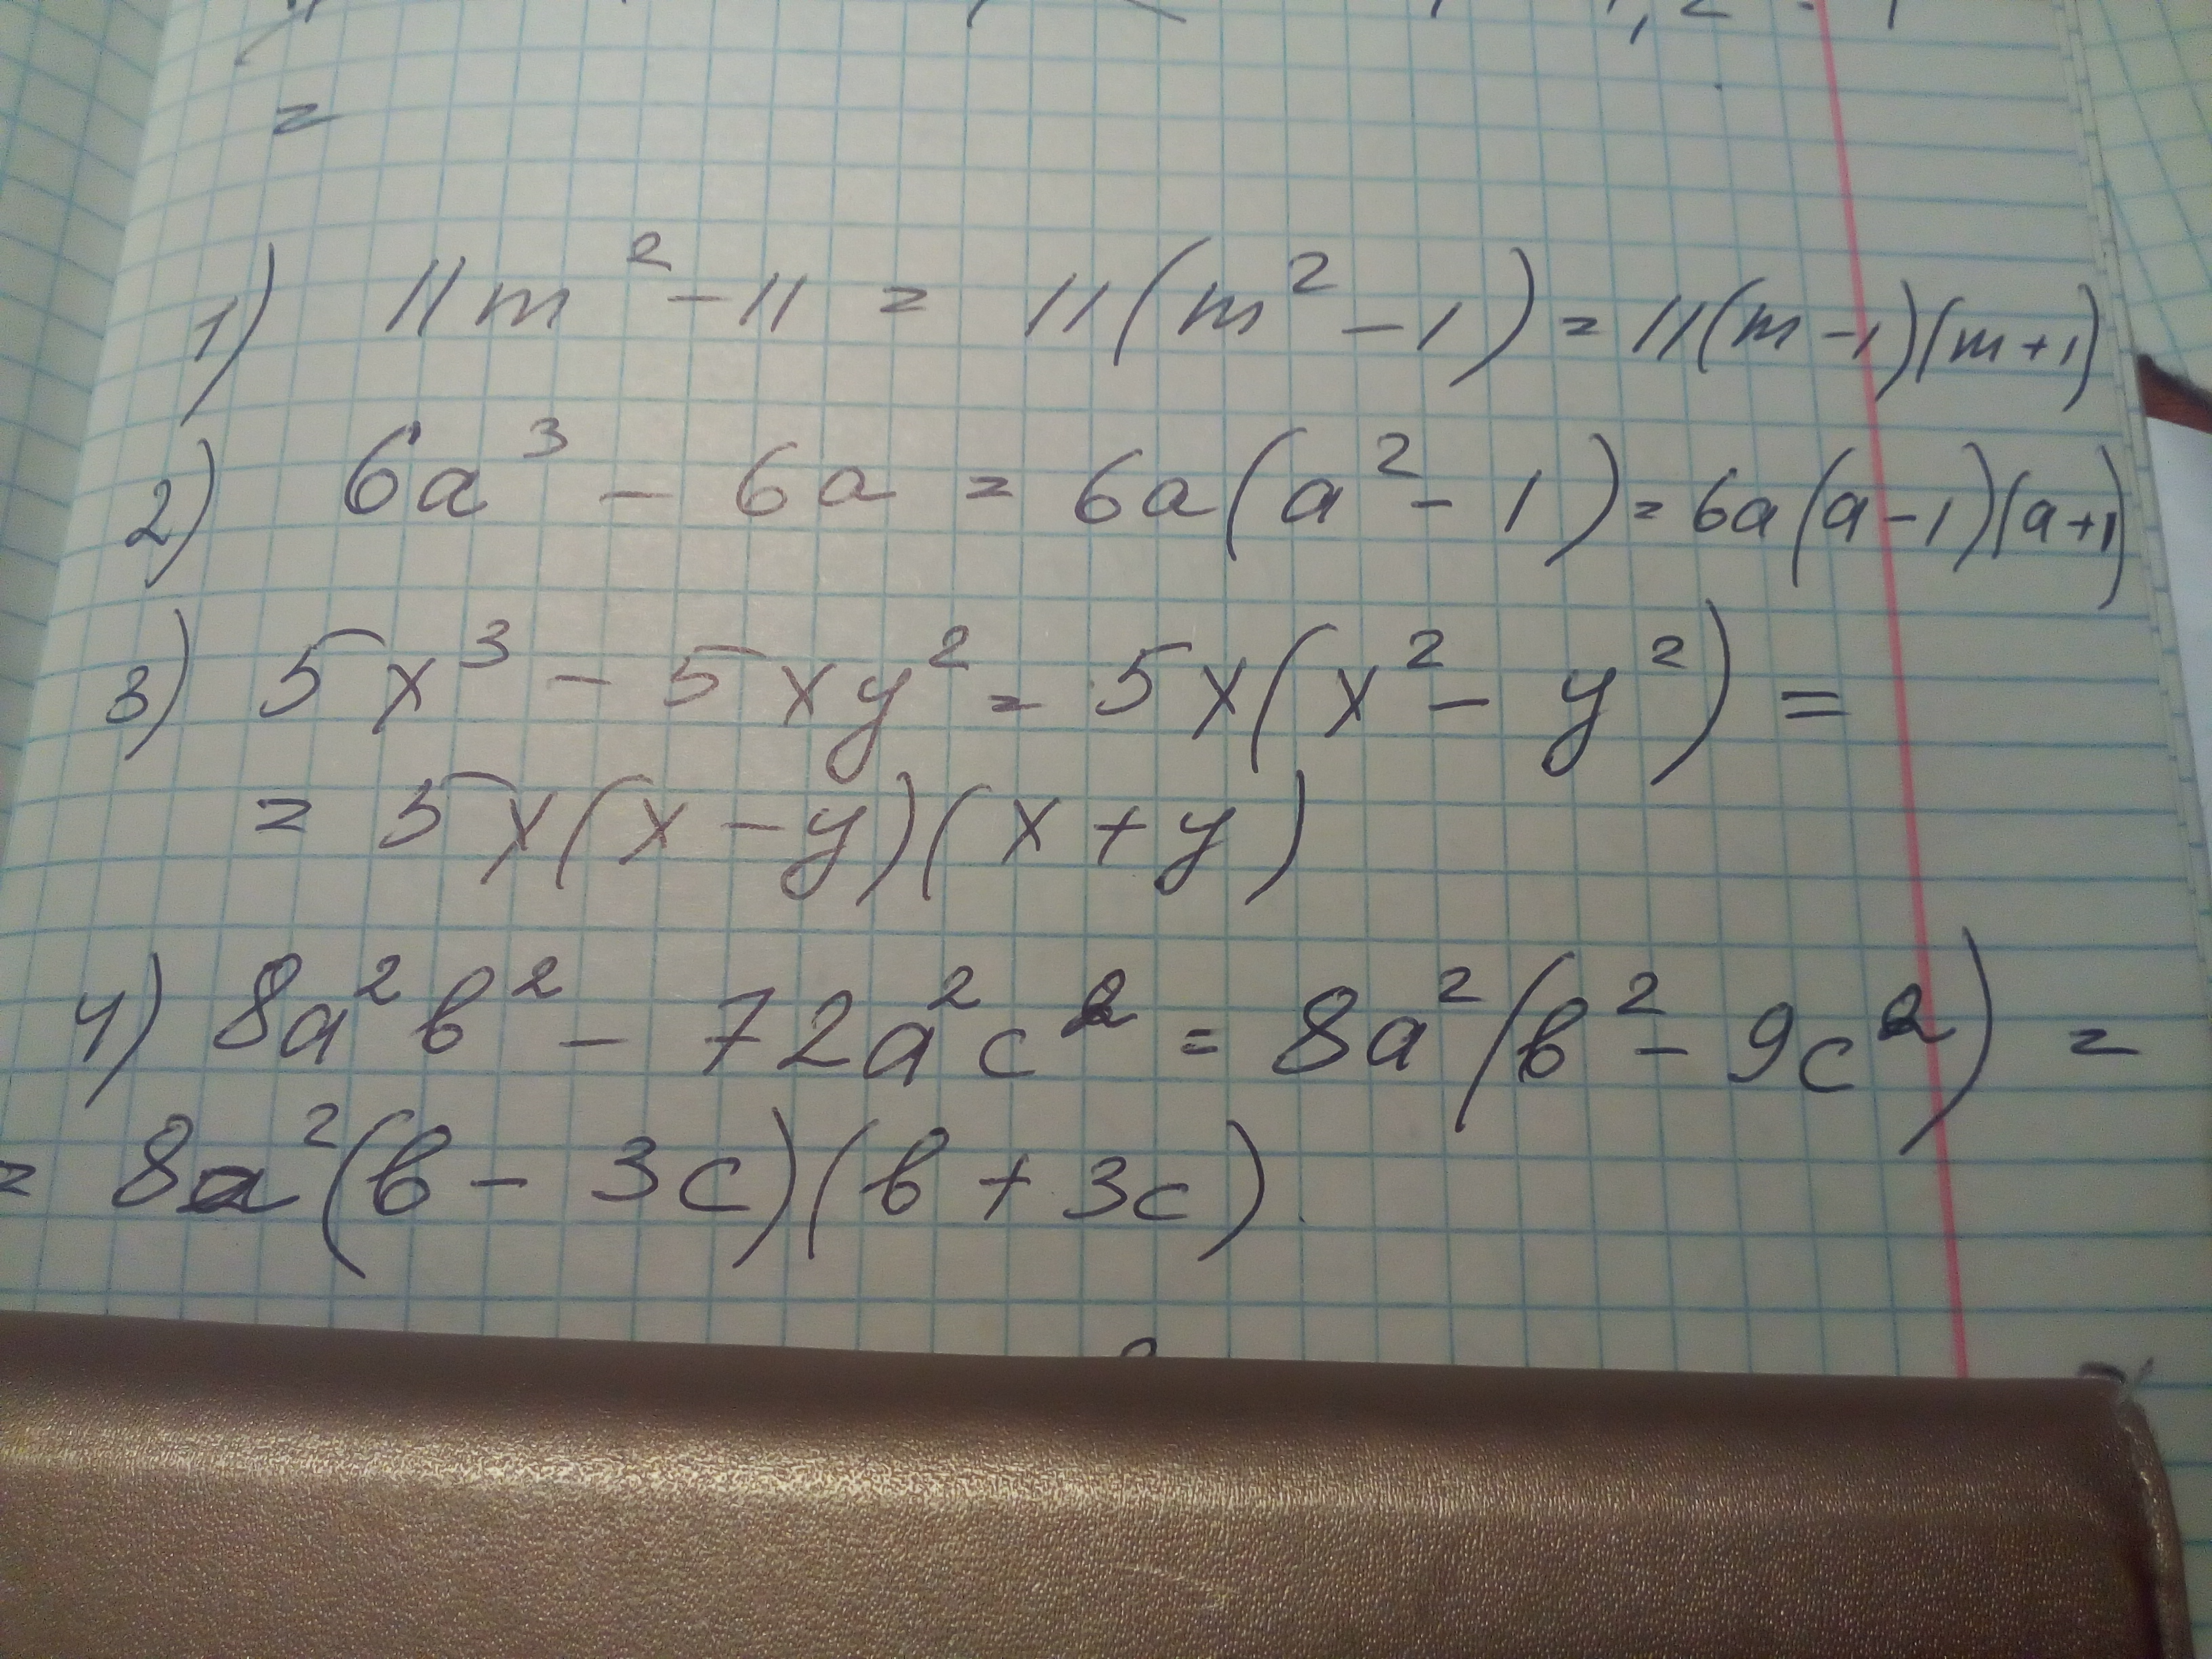 =
1) 11m² - 11 = 11(m² - 1) = 11(m - 1)(m + 1)
2) 6a³ - 6a = 6a(a² - 1) = 6a(a - 1)(a + 1)
3) 5x³ - 5xy² = 5x(x² - y²) =
= 5x(x - y)(x + y)
4) 8a²b² - 72a²c² = 8a²(b² - 9c²) =
= 8a²(b - 3c)(b + 3c)